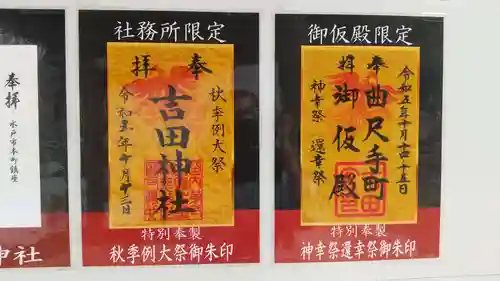 奉拝
水戸市本町鎮座
神社
社務所限定
奉拝
秋季例大祭
吉田神社
令和五年十月十三日
特別奉製
秋季例大祭御朱印
御仮殿限定
奉拝
令和五年十月十四十五日
曲尺手町
御仮殿
神幸祭 還幸祭
特別奉製
神幸祭還幸祭御朱印